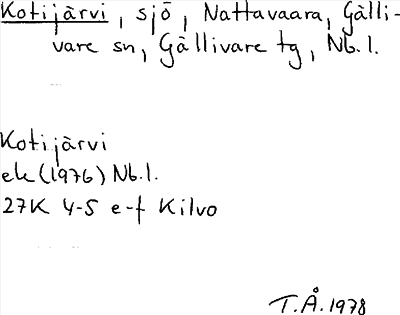 Kotijärvi, sjö, Nattavaara, Gälli-
vare sn, Gällivare tg, Nb.l.
Kotijärvi
ek (1976) Nb.l.
27K 4-5 e-f Kilvo
T.Å. 1978